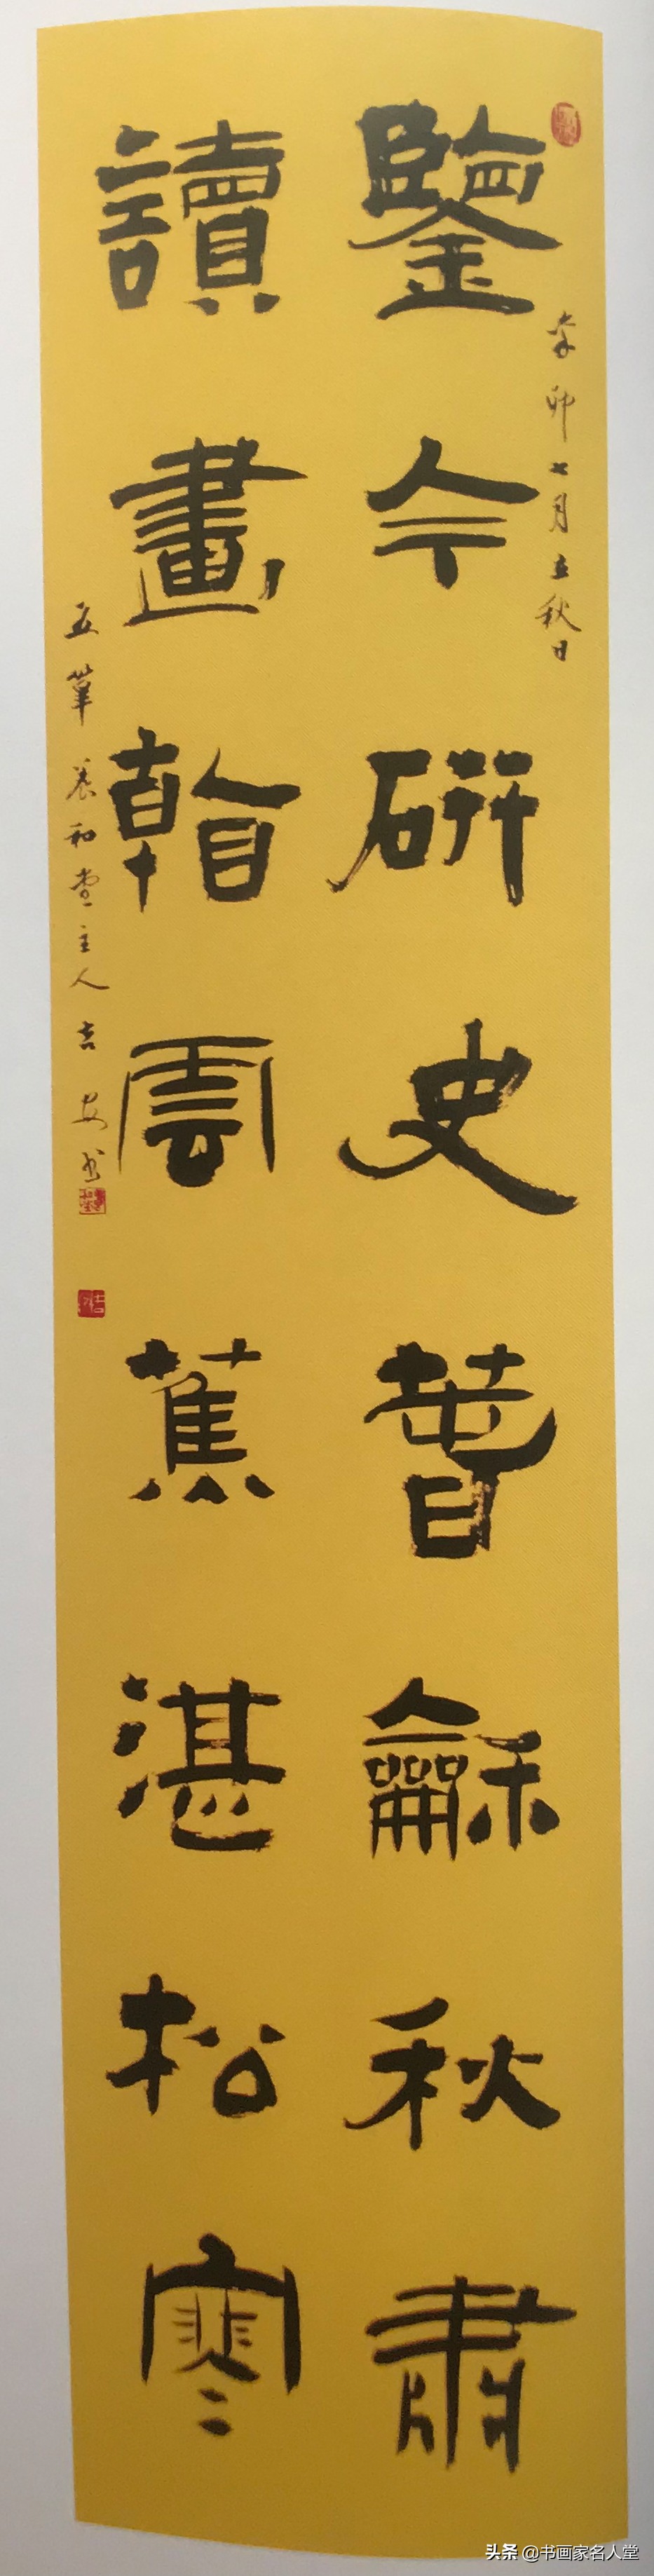 鑒今研史萅龢秋肅
讀畫看雲蕉湛松寒
辛卯七月立秋日
五華養和堂主人吉安书
头条 @书画家名人堂